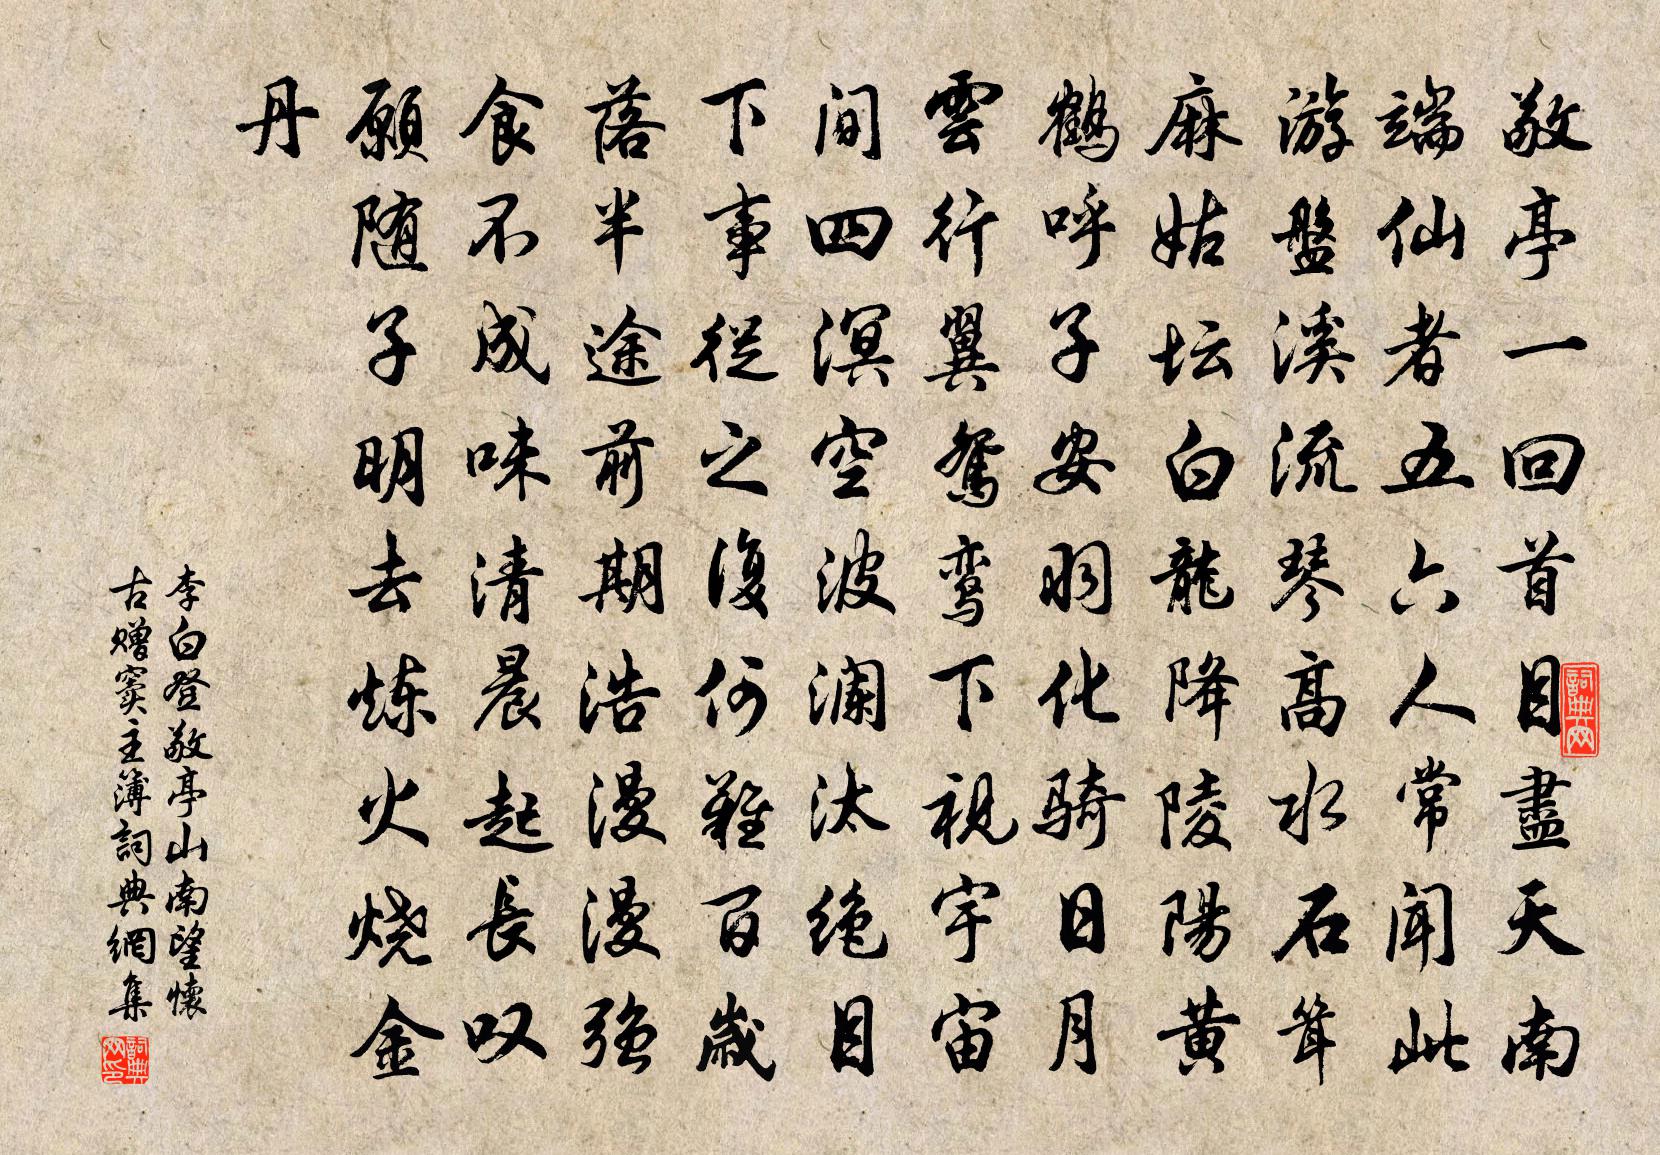 敬亭一回首目盡天南
端仙者五六人常聞此
游盤溪流琴高水石耸
麻姑坛白龍降陵陽黄
鹤呼子安羽化骑日月
雲行翼鸳鸾下視宇宙
间四溟空波澜汰绝目
下事從之復何難百歲
落半途前期浩漫漫強
食不成味清晨起長叹
願随子明去炼火烧金
丹
李白登敬亭山南望懷
古赠窦主簿詞典網集
詞典网
詞典网印